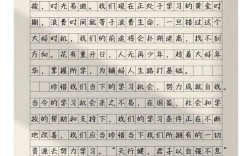 疾，时光易逝。我们现在正处于学习的黄金时
期，浪费时间就等于浪费生命，一旦错过这个
大好时机，我们的前途将会扑朔迷离，找不到
方向。花有重开日，人无再少年，趁着大好年
华，掌握所学，为铺好人生路打基础。
我们应当珍惜当下学习机会，努力成就自我。
当今的学习机会来之不易，在国家、社会和学
校的帮助和支持下，我们的学习条件正在不断
地改善，我们应当珍惜当下我们所拥有的一切
资源去努力学习。“天行健，君子以自强不息